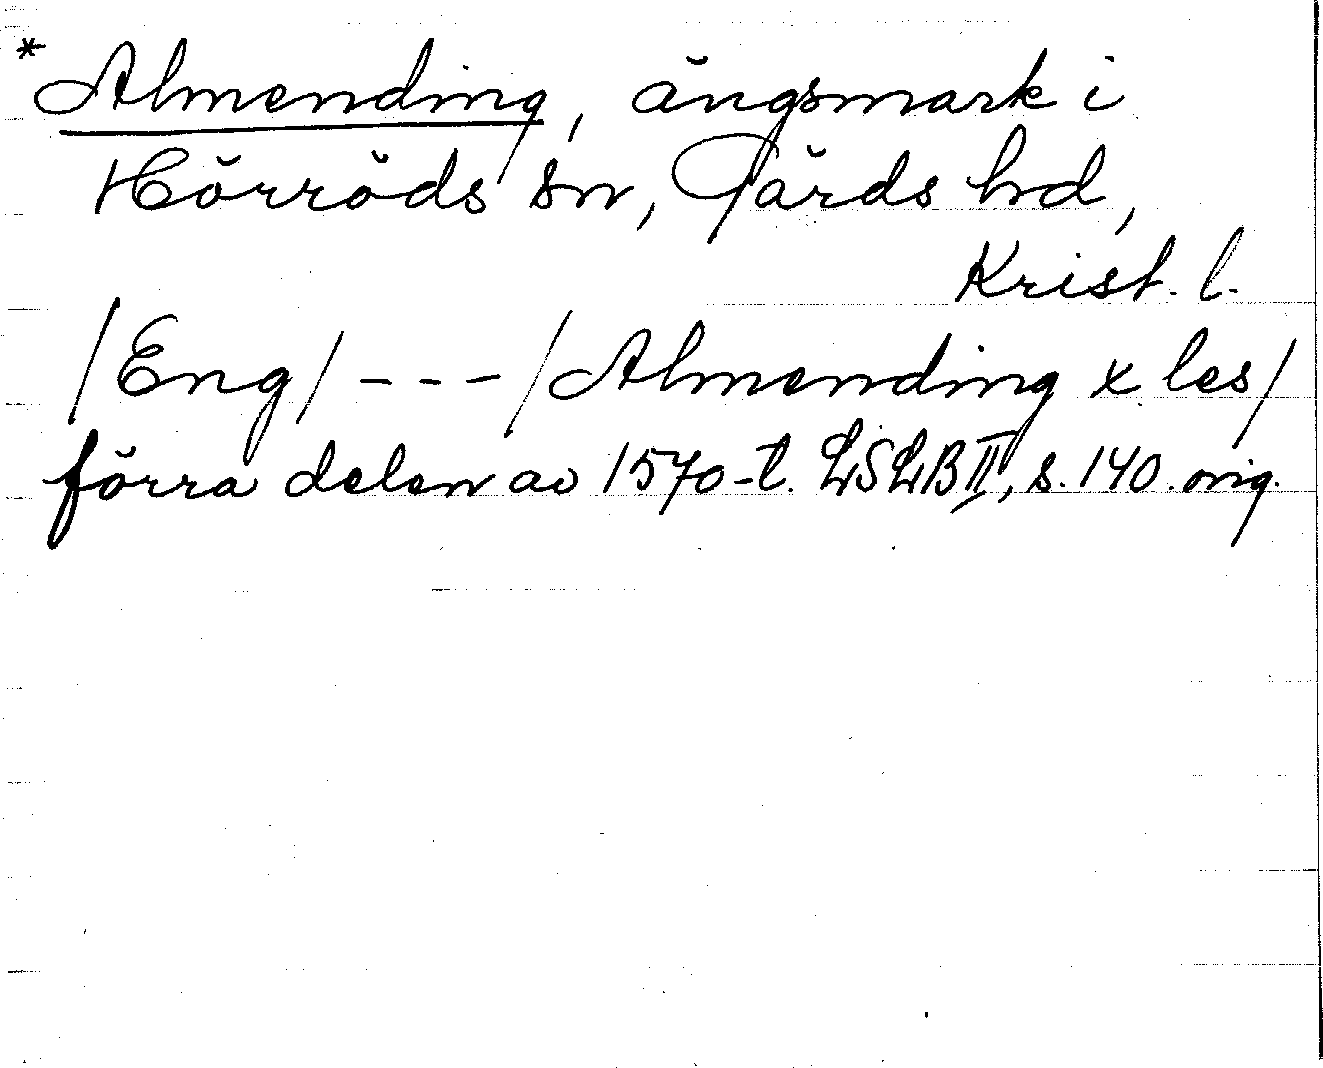 *Almending, ängsmark i
Hörröds sn, Gärds hd,
Krist. l.
/Eng/ - - - /Almending x les/
förra delen av 1570-t. LSLB II, s. 140. orig.